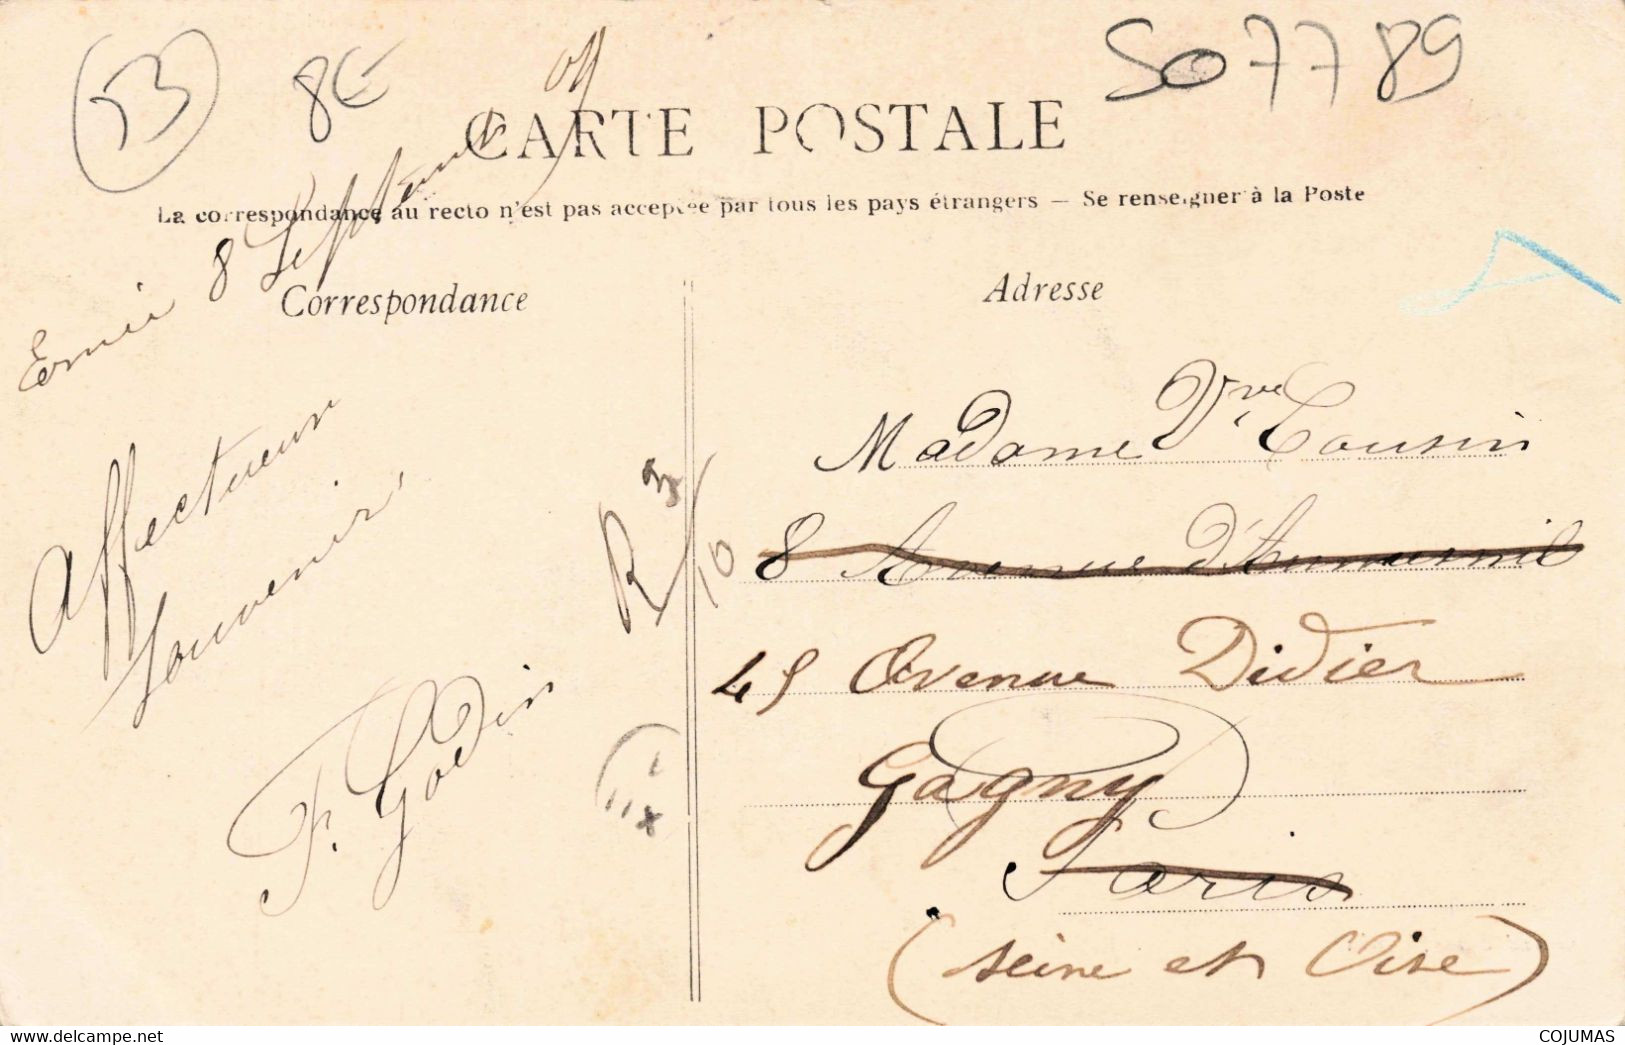 53
8E
S07789
CARTE POSTALE
La correspondance au recto n'est pas acceptée par tous les pays étrangers — Se renseigner à la Poste
Ernée 8 Septembre 09
Correspondance
Affectueux
Souvenir
F. Godin
R 3/10
Adresse
Madame Vve Cousin
8 Avenue
45 Avenue Didier
Gagny
Paris
(Seine et Oise)
https://www.delcampe.net
COJUMAS